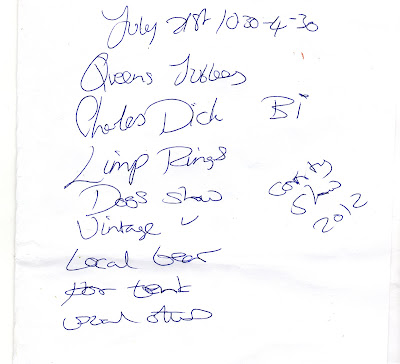 July 21st 10 30-4-30
Queens Jubleey
Charles Dick Bi
Limp Rings
Dogs show
Vintage V
Local bear
for tent
local
County
Show
2012